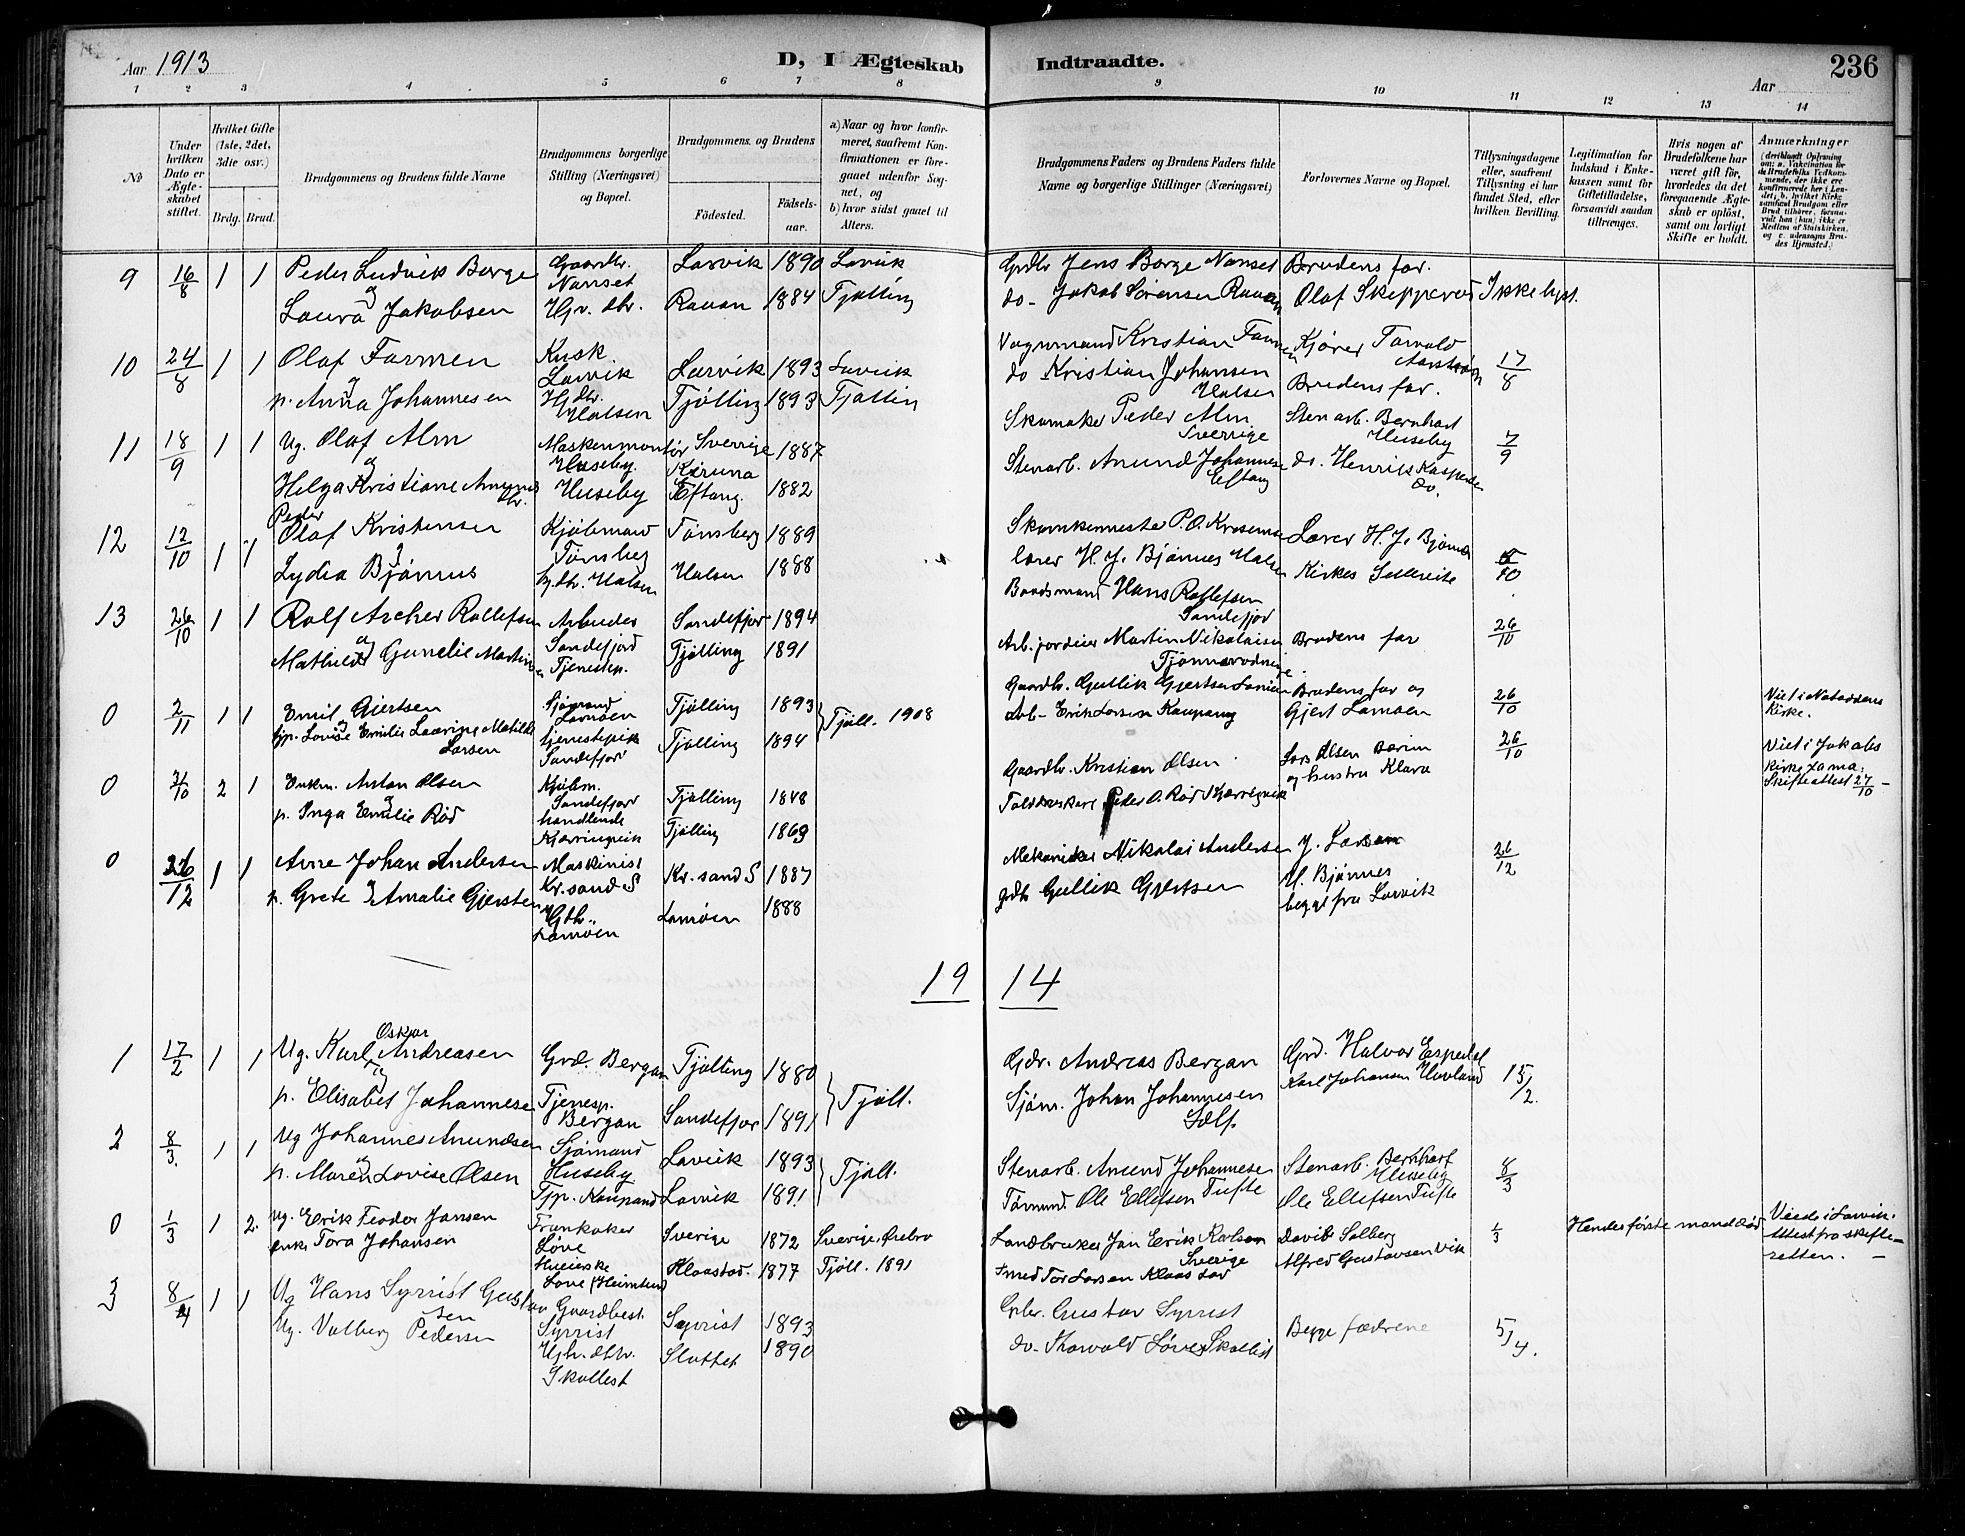 Aar 1913
D, I Ægteskab
Indtraadte.
Aar
236
1 2 3 4 5 6 7 8 9 10 11 12 13 14
No
Under hvilken Dato er Ægteskabet stiftet.
Hvilket Gifte (1ste, 2det, 3die osv.)
Brdg. Brud.
Brudgommens og Brudens fulde Navne
Brudgommens borgerlige Stilling (Næringsvei) og Bopæl.
Brudgommens og Brudens
Fødested.
Fødselsaar.
a) Naar og hvor konfirmeret, saafremt Konfirmationen er foregaaet udenfor Sognet, og
b) hvor sidst gaaet til Alters.
Brudgommens Faders og Brudens Faders fulde Navne og borgerlige Stillinger (Næringsvei)
Forlovernes Navne og Bopæl.
Tillysningsdagene eller, saafremt Tillysning ei har fundet Sted, efter hvilken Bevilling.
Legitimation for Indskud i Enkekassen samt for Giftetilladelse, forsaavidt saadan tiltrænges.
Hvis nogen af Brudefolkene har været gift før, hvorledes da det foregaaende Ægteskab er opløst, samt om lovligt Skifte er holdt.
Anmærkninger
9 16/8 1 1 Peder Ludvik Borge Gaardbr. Nanset Larvik 1890 Larvik Grdbr Jens Borge Nanset Brudens far.
og
Laura Jakobsen Hjv. dtr. Rauan 1884 Tjølling do - Jakob Sørensen Rauan Olaf Skepperød Ikke lyst.
10 24/8 1 1 Olaf Farmen Kusk Larvik Larvik 1893 Larvik Vognmand Kristian Farmen Kjører Torvald 17/8
og
p. Anna Johannesen Hj. dtr. Halsen Tjølling 1893 Tjøllin do Kristian Johansen Halsen Brudens far.
11 18/9 1 1 Ug. Olaf Alm Maskenmontør Huseby. Sverrige Kiruna 1887 Skomaker Peder Alm Sverrige Stenarb. Bernhart Huseby 7/9
og
Helga Kristiane Amunds dtr. Huseby Eftang. 1882 Stenarb. Amund Johannesen Eftang do. Henrik Kaspersen do.
12 12/10 1 1 Peder Olaf Kristensen Kjøbmand Tønsberg Tønsberg 1889 Lærer H. J. Bjønnes
og
Lydia Bjønnes hj. dtr. Halsen Halsen 1888 lærer H. J. Bjønnes Halsen Kirkes 5/10
13 26/10 1 1 Rolf Archer Rollefsen Arbeider Sandefjord Sandefjor 1894 Baadsmand Hans Rollefsen Sandefjor 26/10
og
Mathilde Gunelie Martinsen Tjenestep. Tjølling 1891 Arb. jordeier Martin Nikolaisen Brudens far
0 2/11 1 1 Emil Gjertsen Sjømand Lamøen Tjølling 1893 Tjøll. 1908 Gaardbr. Gullik Gjertsen Lamøen Brudens far og 26/10 Viet i Notoddens Kirke.
og
tjp. Lovise Emilie Laurine Matilde Larsen tjenestepik Sandefjord Tjølling 1894 Arb - Erik Larsen Kaupang Gjert Lamøen
0 31/10 2 1 Enkm. Anton Olsen Kjøbm. Sandefjord Tjølling 1848 Gaardbr. Kristian Olsen Lars Olsen 26/10 Viet i Jakobs Kirke Skifteattest 27/10 -
og
p. Inga Emilie Rød handlende Kjærringvik Tjølling 1869 Peder O. Rød Kjærringvik og hustru Klara
0 26/12 1 1 Arne Johan Andersen Maskinist Kr. sand S Kr. sand S 1887 Mekaniker Nikolai Andersen J. Larsen 26/12
og
p. Grete Amalie Gjertsen Hj dtr. Lamøen Lamøen 1888 grdb Gullik Gjertsen H. Bjønnes begge fra Larvik
19 14
1 17/2 1 1 Ug. Karl Oskar Andreasen Grd. Bergan Tjølling 1880 Tjøll. Gdr. Andreas Bergan Grd. Halvor Espedal 15/2.
og
p. Elisabet Johannesen Tjenesp. Bergan Sandefjor 1891 Sjøm. Johan Johannesen Karl Johansen Huvland
2 8/3. 1 1 Ug Johannes Amundsen Sjømand Huseby Larvik 1893 Tjøll. Stenarb. Amund Johannesen Stenarb. Bernhart Huseby 8/3
og
p. Maren Lovise Olsen Tjp. Kaupang Larvik 1891 Tømmd. Ole Ellefsen Tufte Ole Ellefsen Tufte
0 1/3 1 2. Ug. Erik Teodor Jansen Løve Sverige 1872 Sverige, Ørebro Landbruker Jan Erik Karlson Sverige David Solberg 1/3 Hendes første mand død Viede i Larvik. Attest fra skifteretten. -
Enke Tora Johansen Løve (Heimland) Klaastad. 1877 Tjøll. 1891 Smed Tor Larsen Klaastad Alfred Gustavsen Vik
3 8/4 1 1 Ug Hans Syrrist Gustavsen Gaardbest. Syrrist Syrrist 1893 Gbr. Gustav Syrrist Begge fædrene 5/4.
Ug. Valberg Pedersen Ugh. dtr. Skallest Slottet 1890 do. Thorvald Løve Skallist